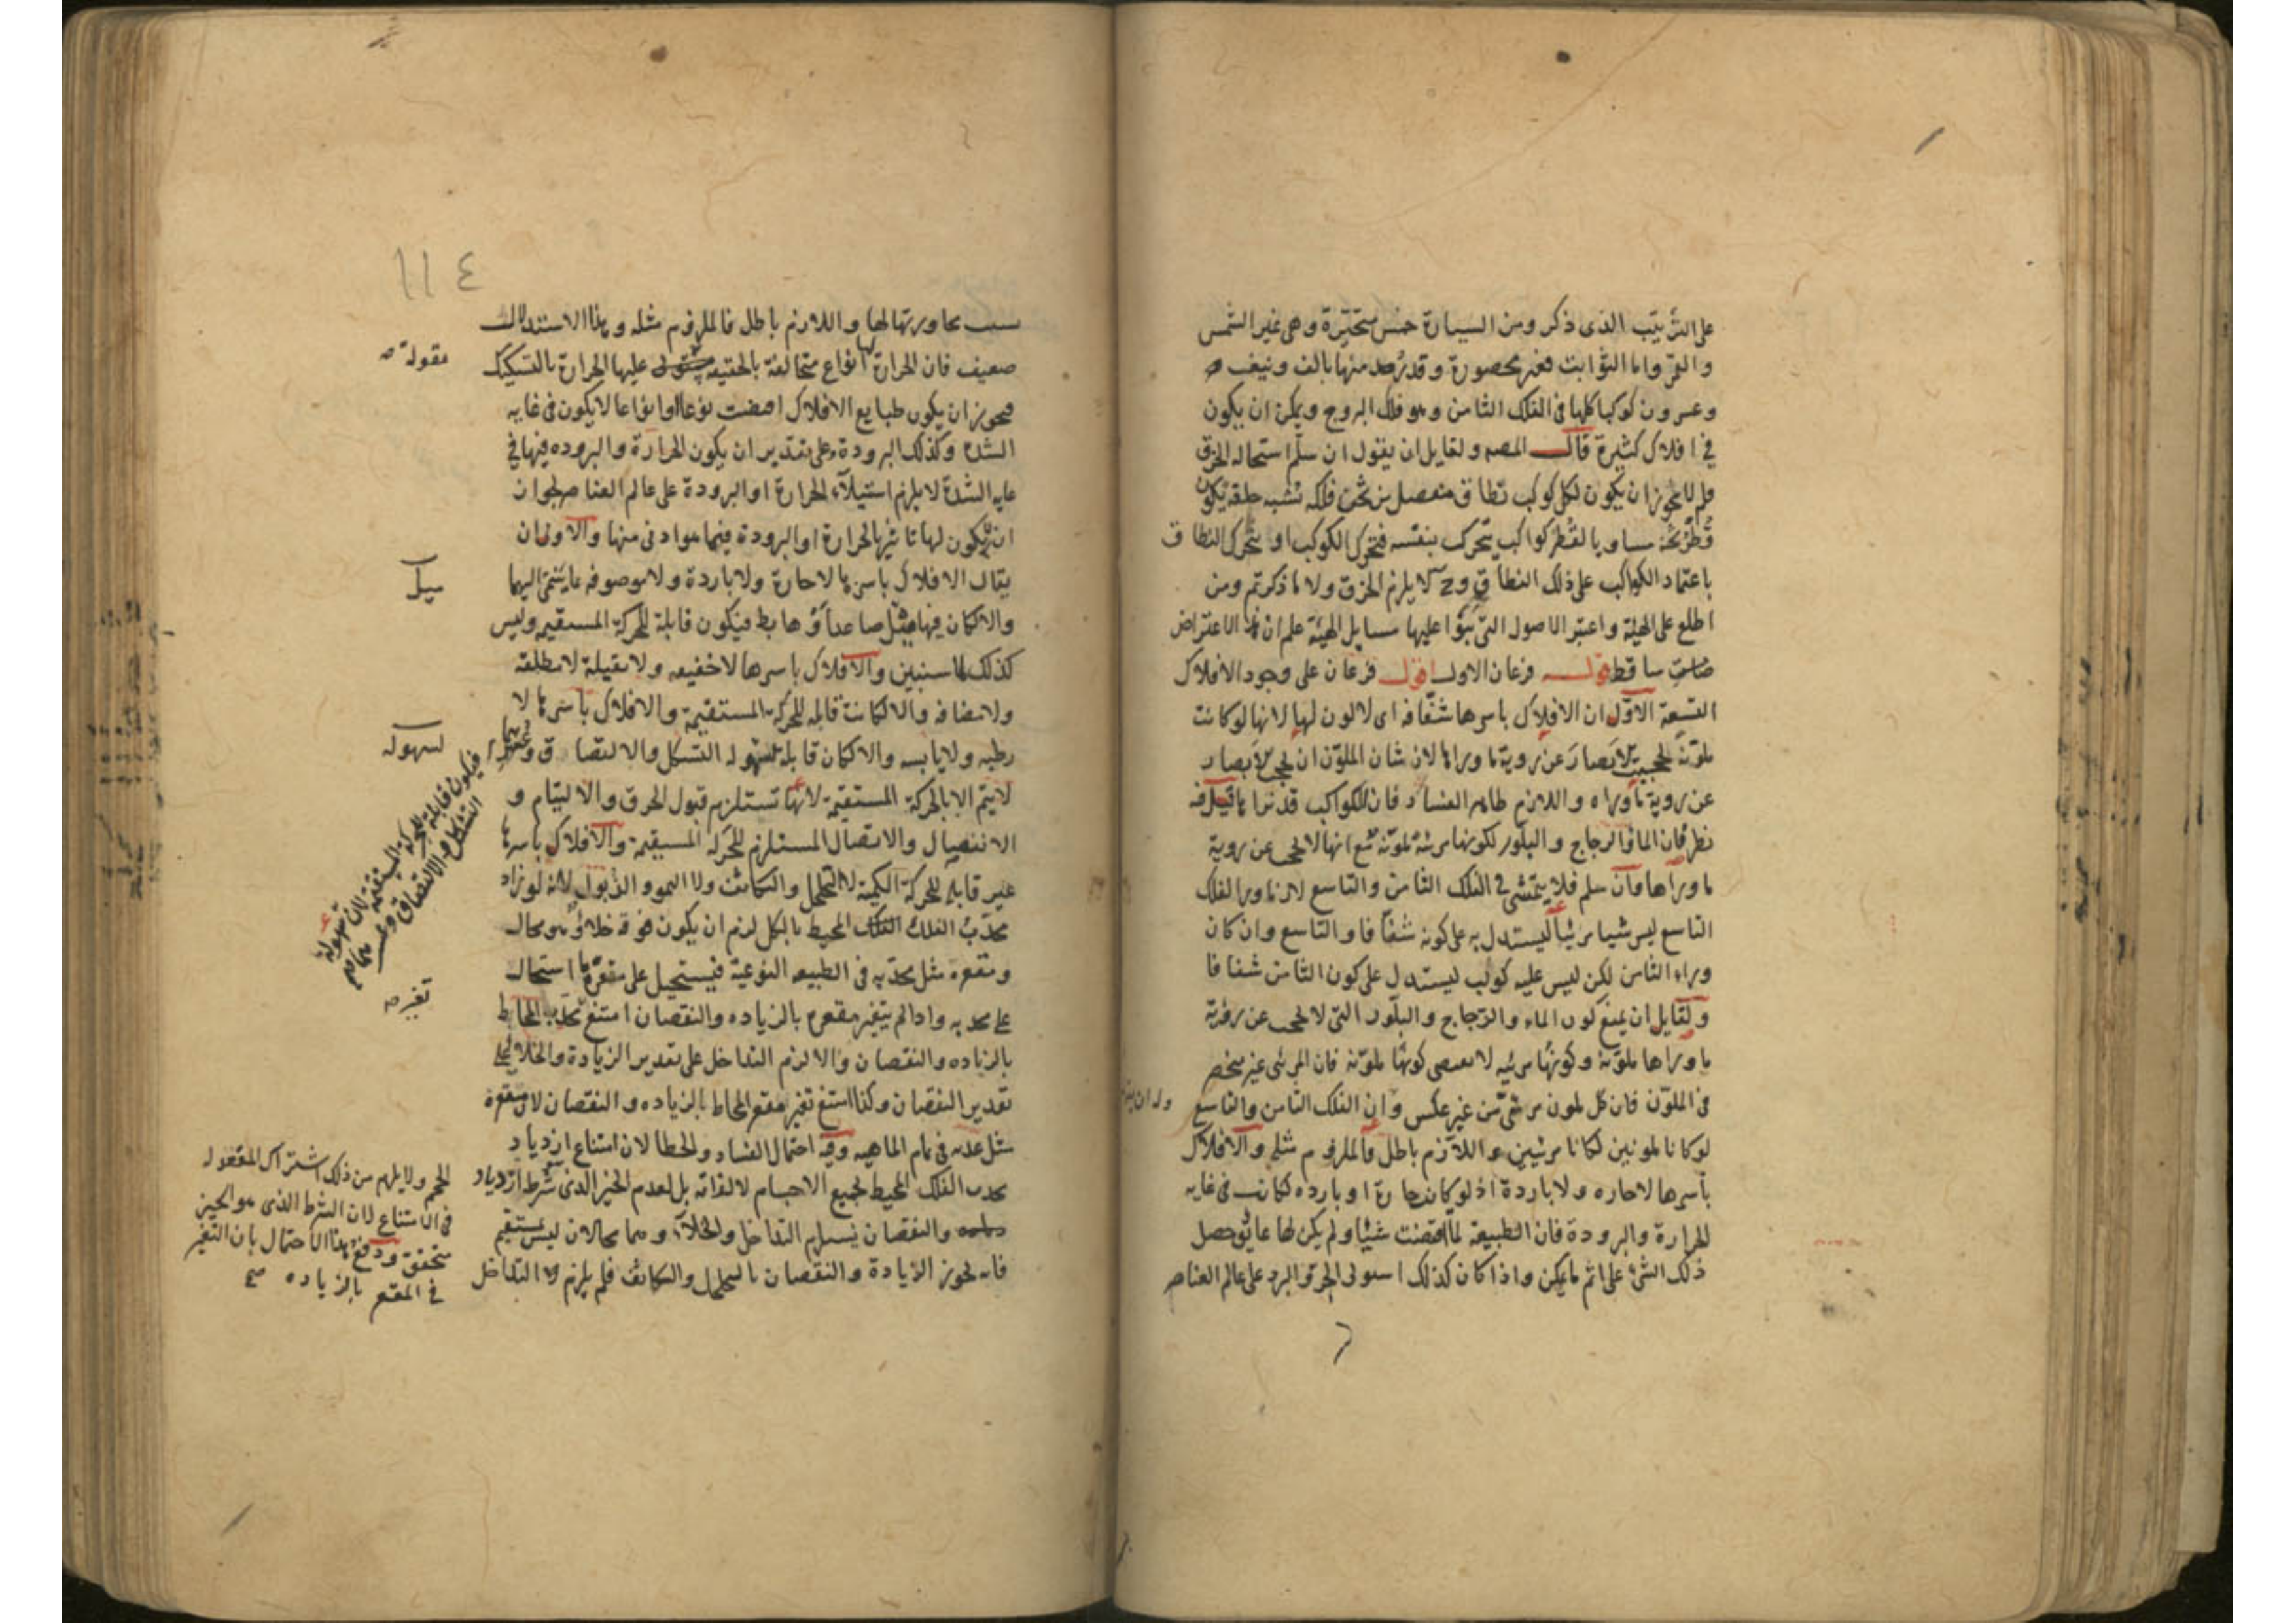 على الترتيب الذى ذكر ومن السيارة خمس متحيرة وهى غير الشمس
والقمر واما الثوابت فغير محصورة وقد رصد منها بالف ونيف
وعسرون كوكبا كلها فى الفلك الثامن وهو فلك البروج ويمكن ان يكون
فى افلاك كثيرة قال المصه ولقايل ان يقول ان سلم استحاله الخرق
فلم لا يجوز ان يكون لكل كوكب نطاق منفصل من ثخن فلكه تشبه حلقه يكون
قطر ثخنه مساويا لقطر كواكب يتحرك بنفسه فتحرك الكوكب او يتحرك النطاق
باعتماد الكواكب على ذلك النطاق وح لا يلزم الخرق ولا ما ذكرتم ومن
اطلع على الهيئة واعتبر الاصول التى بنوا عليها مسايل الهيئة علم ان هذا الاعتراض
ساقط قوله فرعان الاول اقول فرعان على وجود الافلاك
التسعة الاول ان الافلاك باسرها شفافه اى لا لون لها لانها لو كانت
ملونه لحجبت الابصار عن روية ما وراها لان شان الملون ان يحجب الابصار
عن روية ما وراه واللازم ظاهر الفساد فان الكواكب قد نراها قيل فه
نظر فان الما والزجاج والبلور لكونها مرئة ملونة مع انها لا تحجب عن روية
ما وراها فان سلم فلا يتمشى فى الفلك الثامن والتاسع لان ما ورا الفلك
التاسع ليس شيا مرئيا ليستدل به على كونه شفافا والتاسع وان كان
وراء الثامن لكن ليس عليه كوكب ليستدل على كون الثامن شفافا
ولقايل ان يمنع كون الماء والزجاج والبلور التى لا تحجب عن روية
ما وراها ملونة وكونها مرئيه لا يقتضى كونها ملونه فان المرئى غير منحصر
فى الملون فان كل ملون مرئى من غير عكس وان الفلك الثامن والتاسع
لو كانا ملونين لكانا مرئيين واللازم باطل فالملزوم مثله والافلاك
باسرها لا حاره ولا باردة اذ لو كان حارة او بارده لكانت فى غايه
الحرارة والبرودة فان الطبيعه لما اقتضت شيئا ولم يكن لها عائق حصل
ذلك الشئ على اتم ما يمكن واذا كان كذلك استولى الحر والبرد على عالم العناصر
سبب مجاورتها لها واللازم باطل فالملزوم مثله وهذا الاستدلال
ضعيف فان الحرارة انواع متخالفة بالحقيقه عليها الحرارة بالتشكيك
مقولة صه
فيجوز ان يكون طبايع الافلاك اقتضت نوعا او انواعا لا يكون فى غايه
الشدة وكذلك البرودة وعلى تقدير ان يكون الحرارة والبروده فيها فى
غايه الشدة لا يلزم استيلاء الحرارة او البرودة على عالم العناصر لجواز
ان لا يكون لها تاثير بالحرارة او البرودة فيما هو ادنى منها والاولى ان
يقال الافلاك باسرها لا حارة ولا باردة ولا موصوفه بما ينتمى اليهما
ميل
والا لكان فيها ميل صاعد او هابط فيكون قابلة للحركة المستقيمه وليس
كذلك لما سنبين والافلاك باسرها لا خفيفه ولا ثقيلة لا مطلقه
ولا مضافه والا لكانت قابله للحركة المستقيمة والافلاك باسرها لا
رطبه ولا يابسه والا لكان قابلة لسهوله التشكل والالتصاق او عسرهما
لسهوله
لا يتم الا بالحركة المستقيمة لانها تستلزم قبول الخرق والالتيام و
الانفصال والاتصال المستلزم للحركة المستقيمة والافلاك باسرها
غير قابله للحركة الكمية لا التخلخل والتكاثف ولا النمو والذبول لانه لو زاد
محدب الفلك المحيط بالكل لزم ان يكون فوقه خلاء وهو محال
ومقعره مثل محدبه فى الطبيعه النوعية فيستحيل على مقعره ما استحال
على محدبه واذا لم يتغير مقعره بالزياده والنقصان امتنع محدب المحاط
تغير صه
بالزياده والنقصان والا لزم التداخل على تقدير الزيادة والخلا على
تقدير النقصان وكذا امتنع تغير مقعر المحاط بالزياده والنقصان لان مقعره
مثل محدبه فى تمام الماهيه وفيه احتمال الفساد والخطا لان امتناع ازدياد
محدب الفلك المحيط لجميع الاجسام لا لذاته بل لعدم الحيز الذى شرط ازدياد
والنقصان يستلزم التداخل والخلاء وهما محالان ليس بمستقيم
فانه يجوز الزيادة والنقصان بالتخلخل والتكاثف فلم يلزم لا التداخل
فيكون قابلة للحركة المستقيمه لان سهولة
التشكل والالتصاق وعسرهما
الحجم ولا يلزم من ذلك اشتراك المقعر له
فى الامتناع لان الشرط الذى هو الحيز
متحقق ودفع هذا الاحتمال بان التغير
فى المقعر بالزياده صح
١١٤